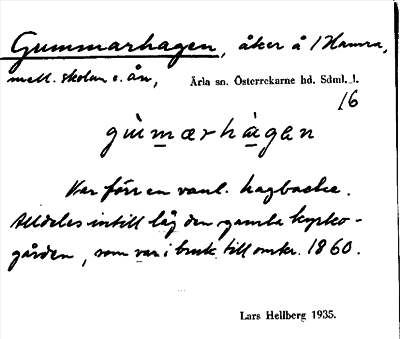 Gummarhagen, åker å 1 Hamra,
mell. skolan o. ån, Ärla sn. Österrekarne hd. Sdml. l.
16
gu̇̀m̲ærhȧ̲̀gan
Var förr en vanl. hagbacke.
Alldeles intill låg den gamla kyrko-
gården, som var i bruk till omkr. 1860.
Lars Hellberg 1935.